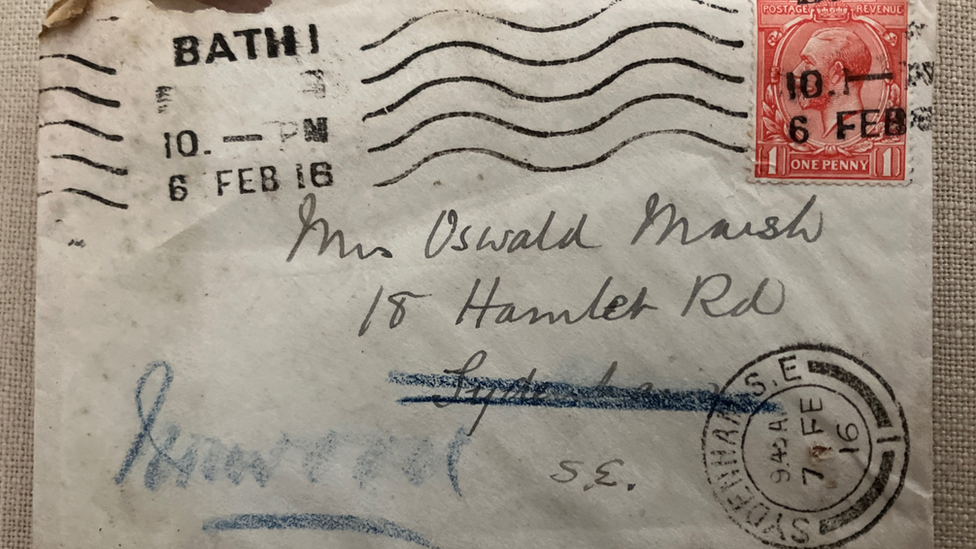 BATH
10. — PM
6 FEB 16
POSTAGE REVENUE
10.1 —
6 FEB
1 ONE PENNY 1
Mrs Oswald Marsh
18 Hamlet Rd
Sydenham
Norwood
S.E.
SYDENHAM S.E
9.45 AM
7 FE
16